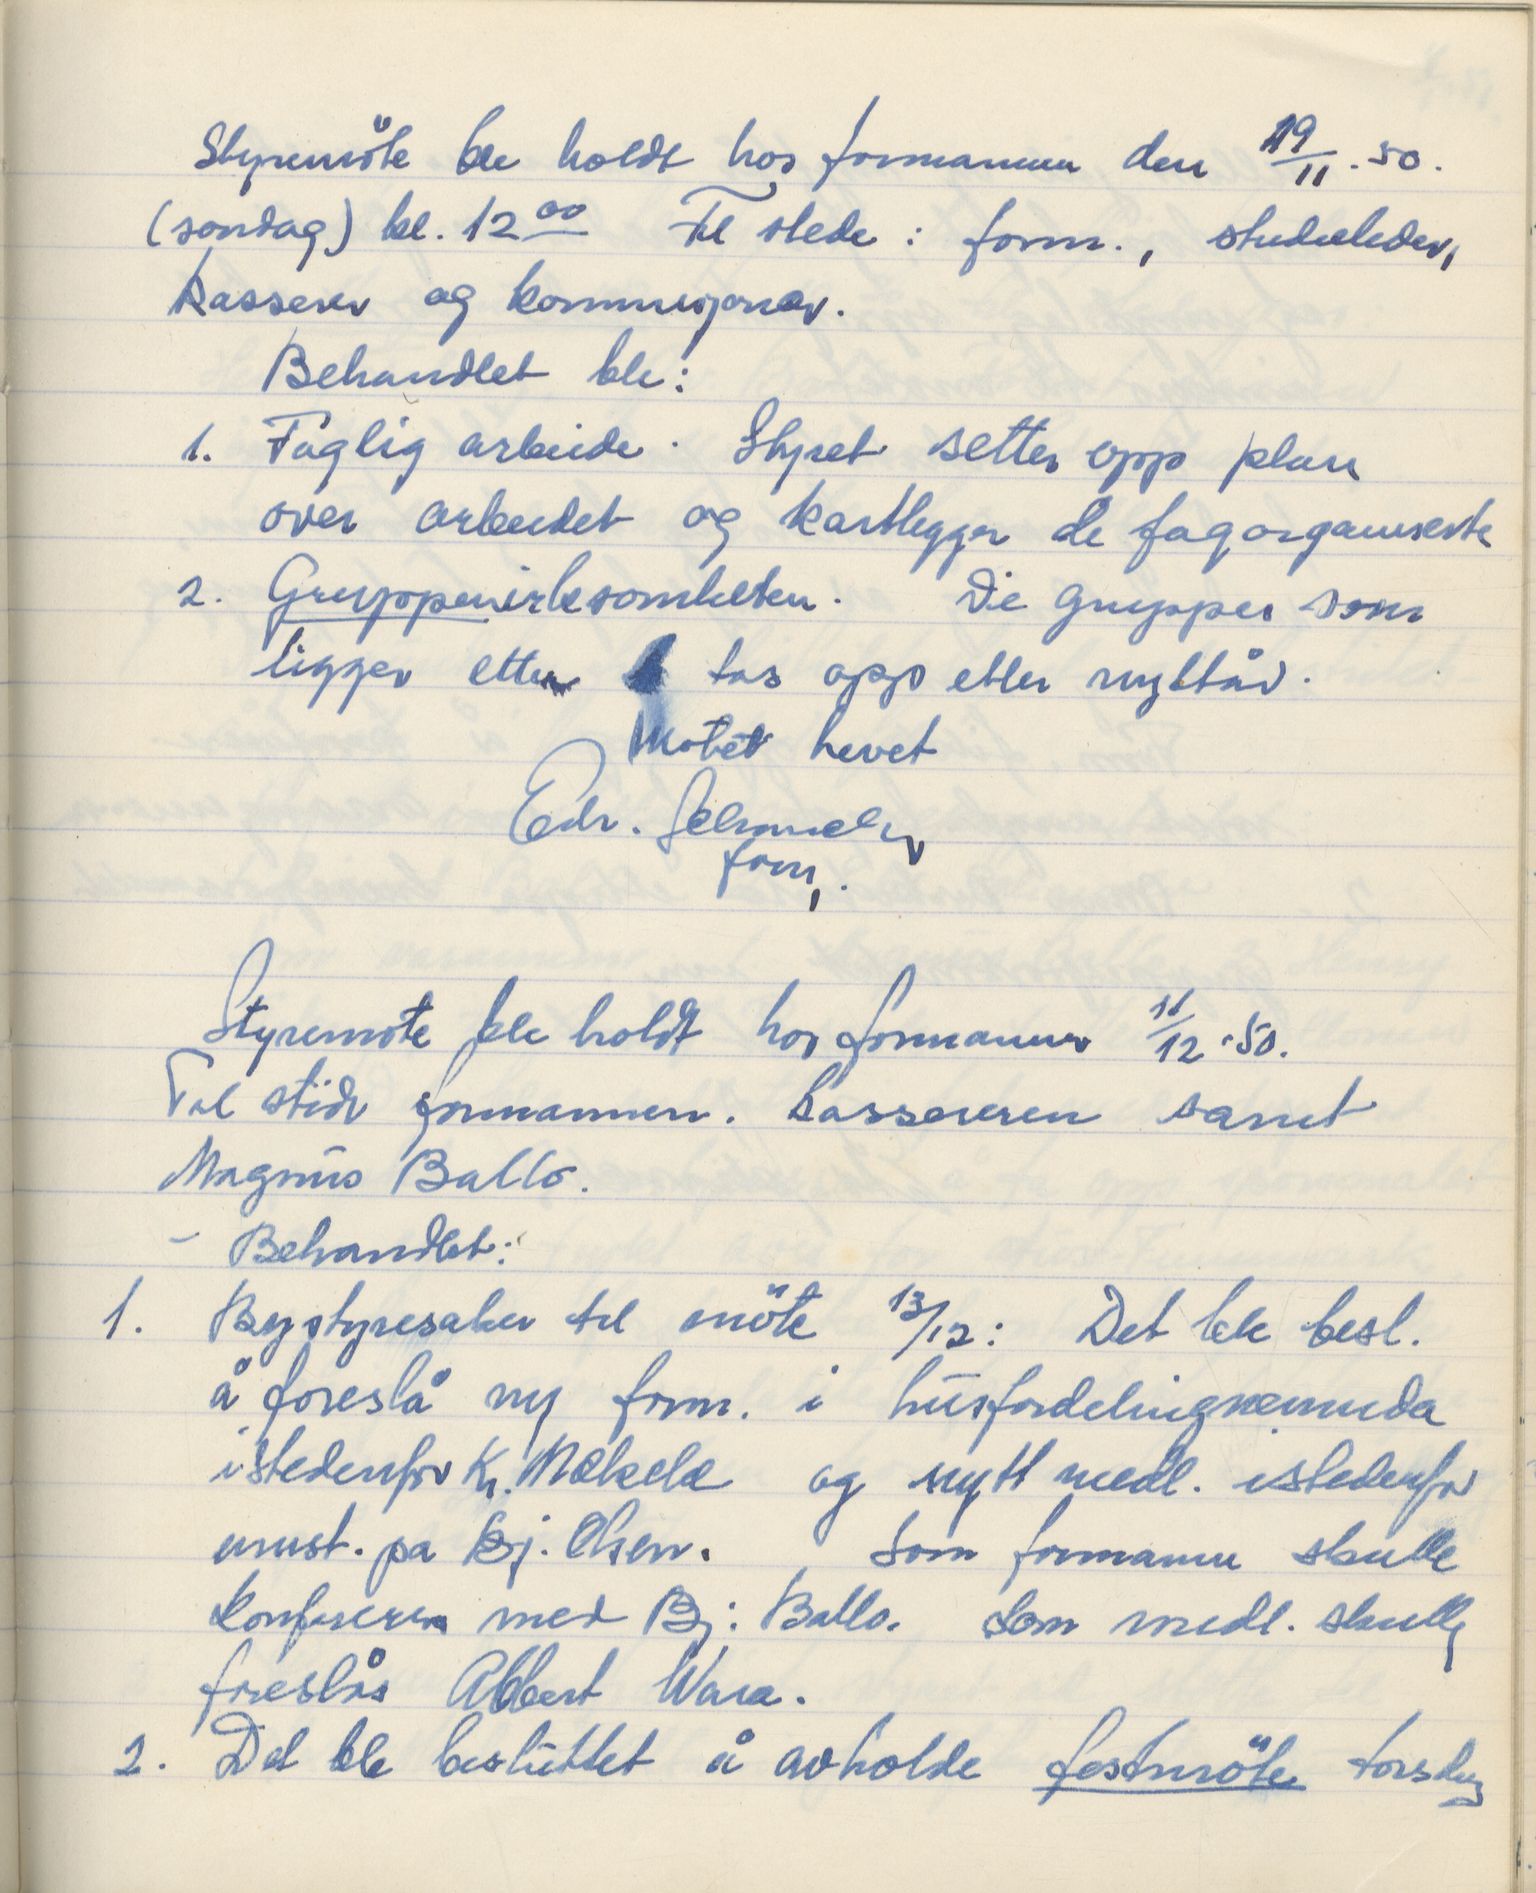 Styremöte ble holdt hos formannen den 19/11.50.
(søndag) kl. 12 00 Til stede : form., studieleder,
kasserer og kommisjonær.
Behandlet ble:
1. Faglig arbeide. Styret setter opp plan
over arbeidet og kartlegger de fagorganiserte
2. Gruppevirksomheten. De grupper som
ligger etter tas opp etter nyttår.
Møtet hevet
Edv.
form.
Styremøte ble holdt hos formannen 11/12.50.
Til stede formannen. kassereren samt
Magnus Ballo.
- Behandlet:
1. Bystyresaker til möte 13/12: Det ble besl.
å foreslå ny form. i husfordelingnemnda
istedenfor Kr. Mækelæ og nytt medl. istedenfor
unnst. på Bj. Olsen. Som formann skulle
konferere med Bj. Ballo. Som medl. skulle
foreslås Albert Wara.
2. Det ble besluttet å avholde festmöte torsdag